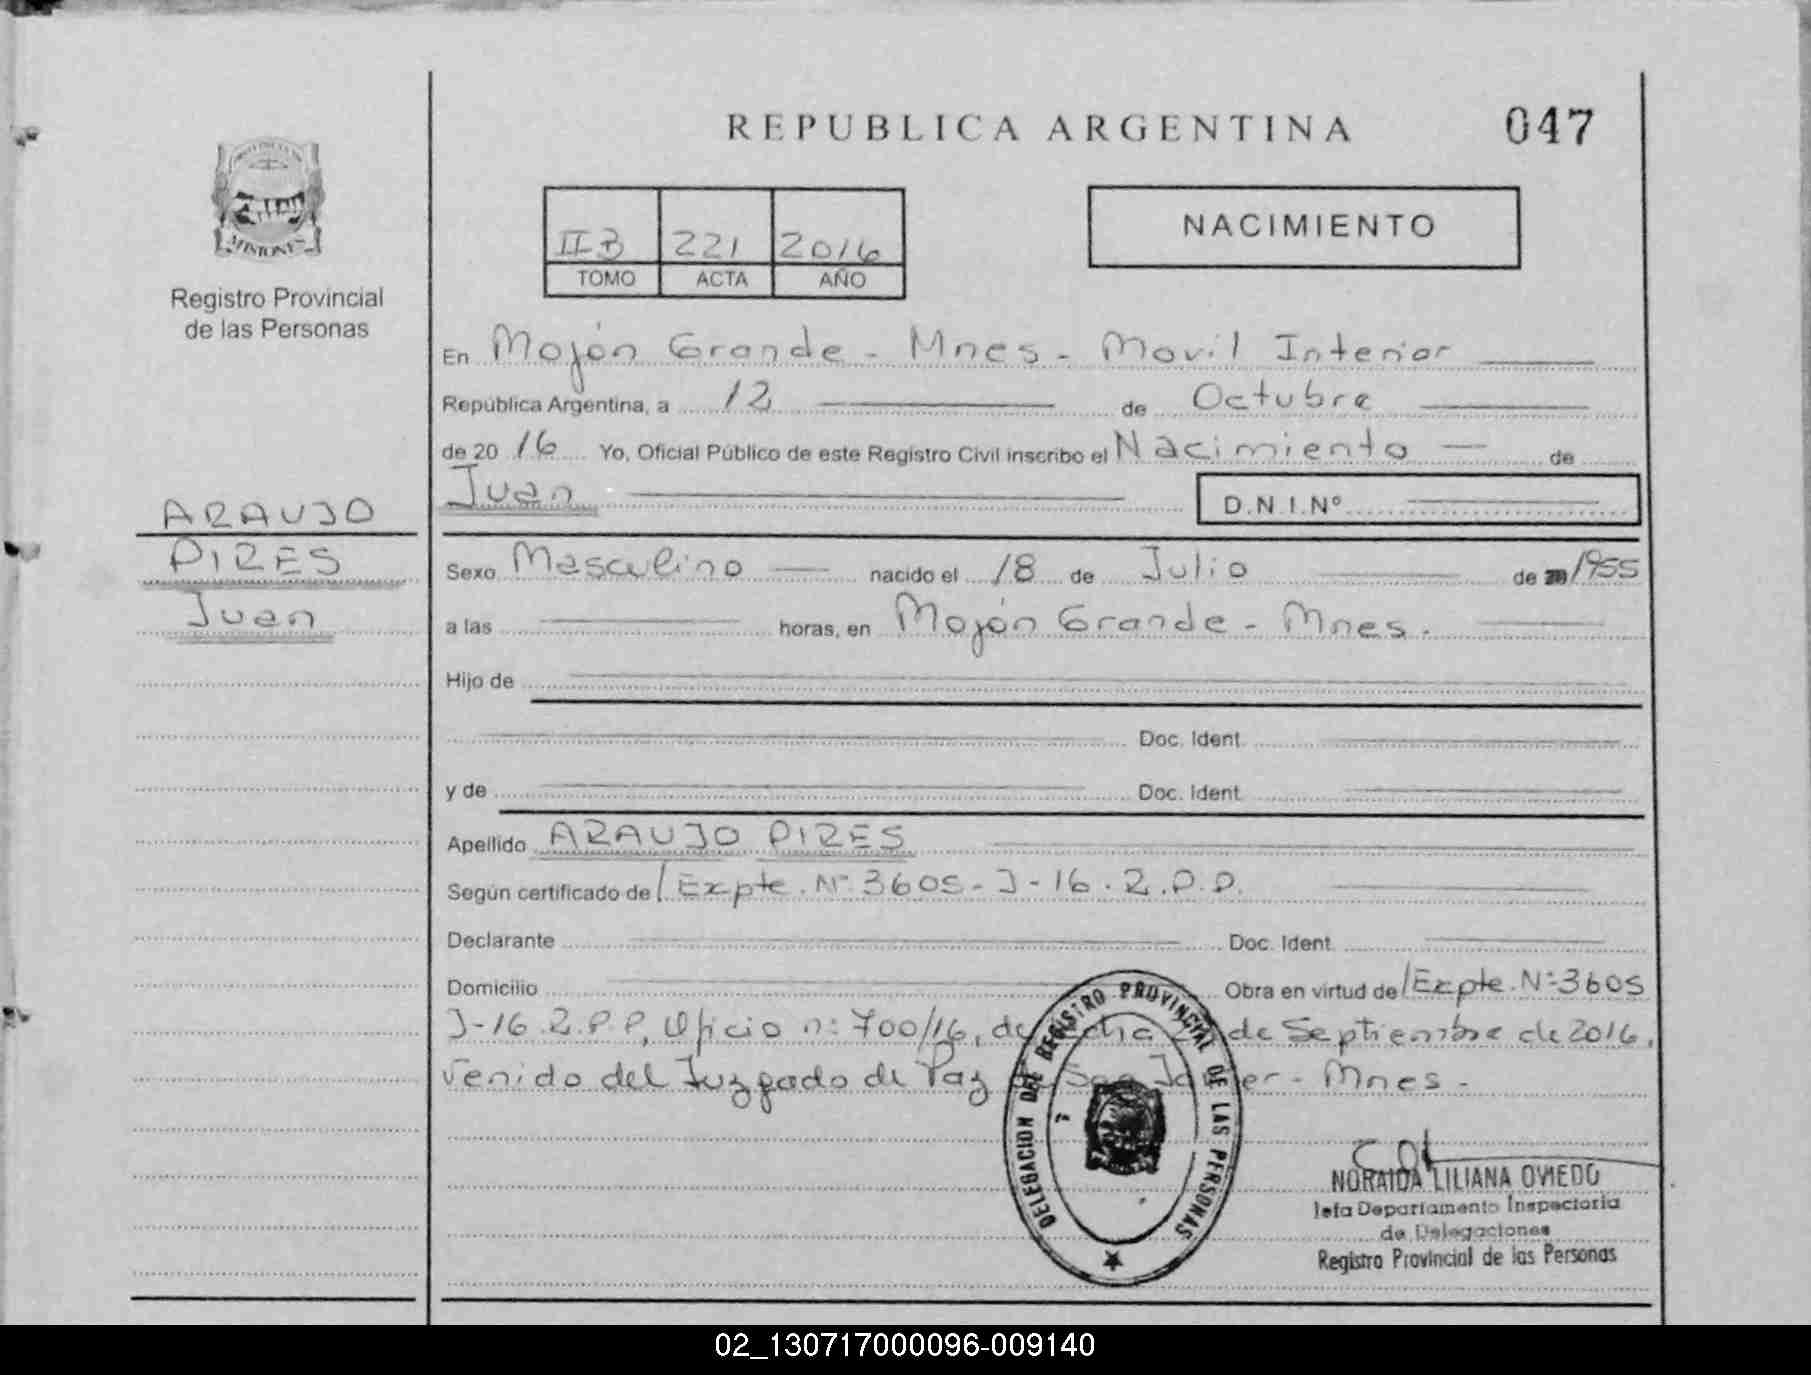 REPUBLICA ARGENTINA
047
MISIONES
Registro Provincial
de las Personas
IIB 221 2016
TOMO ACTA AÑO
NACIMIENTO
En Mojón Grande - Mnes - Movil Interior
República Argentina, a 12 de Octubre
de 20 16 Yo, Oficial Público de este Registro Civil inscribo el Nacimiento de
Juan D.N.I.Nº
ARAUJO
PIRES
Juan
Sexo Masculino nacido el 18 de Julio de 1955
a las horas, en Mojón Grande - Mnes.
Hijo de
Doc. Ident.
y de Doc. Ident.
Apellido ARAUJO PIRES
Según certificado de / Expte. Nº 3605-J-16. R.P.P.
Declarante Doc. Ident.
Domicilio Obra en virtud de / Expte. Nº 3605
J-16.R.P.P, Oficio nº 700/16, de de Septiembre de 2016,
venido del Juzgado de Paz San Javier - Mnes -
DELEGACION DEL REGISTRO PROVINCIAL DE LAS PERSONAS
NORAIDA LILIANA OVIEDO
Jefa Departamento Inspectoria
de Delegaciones
Registro Provincial de las Personas
02_130717000096-009140